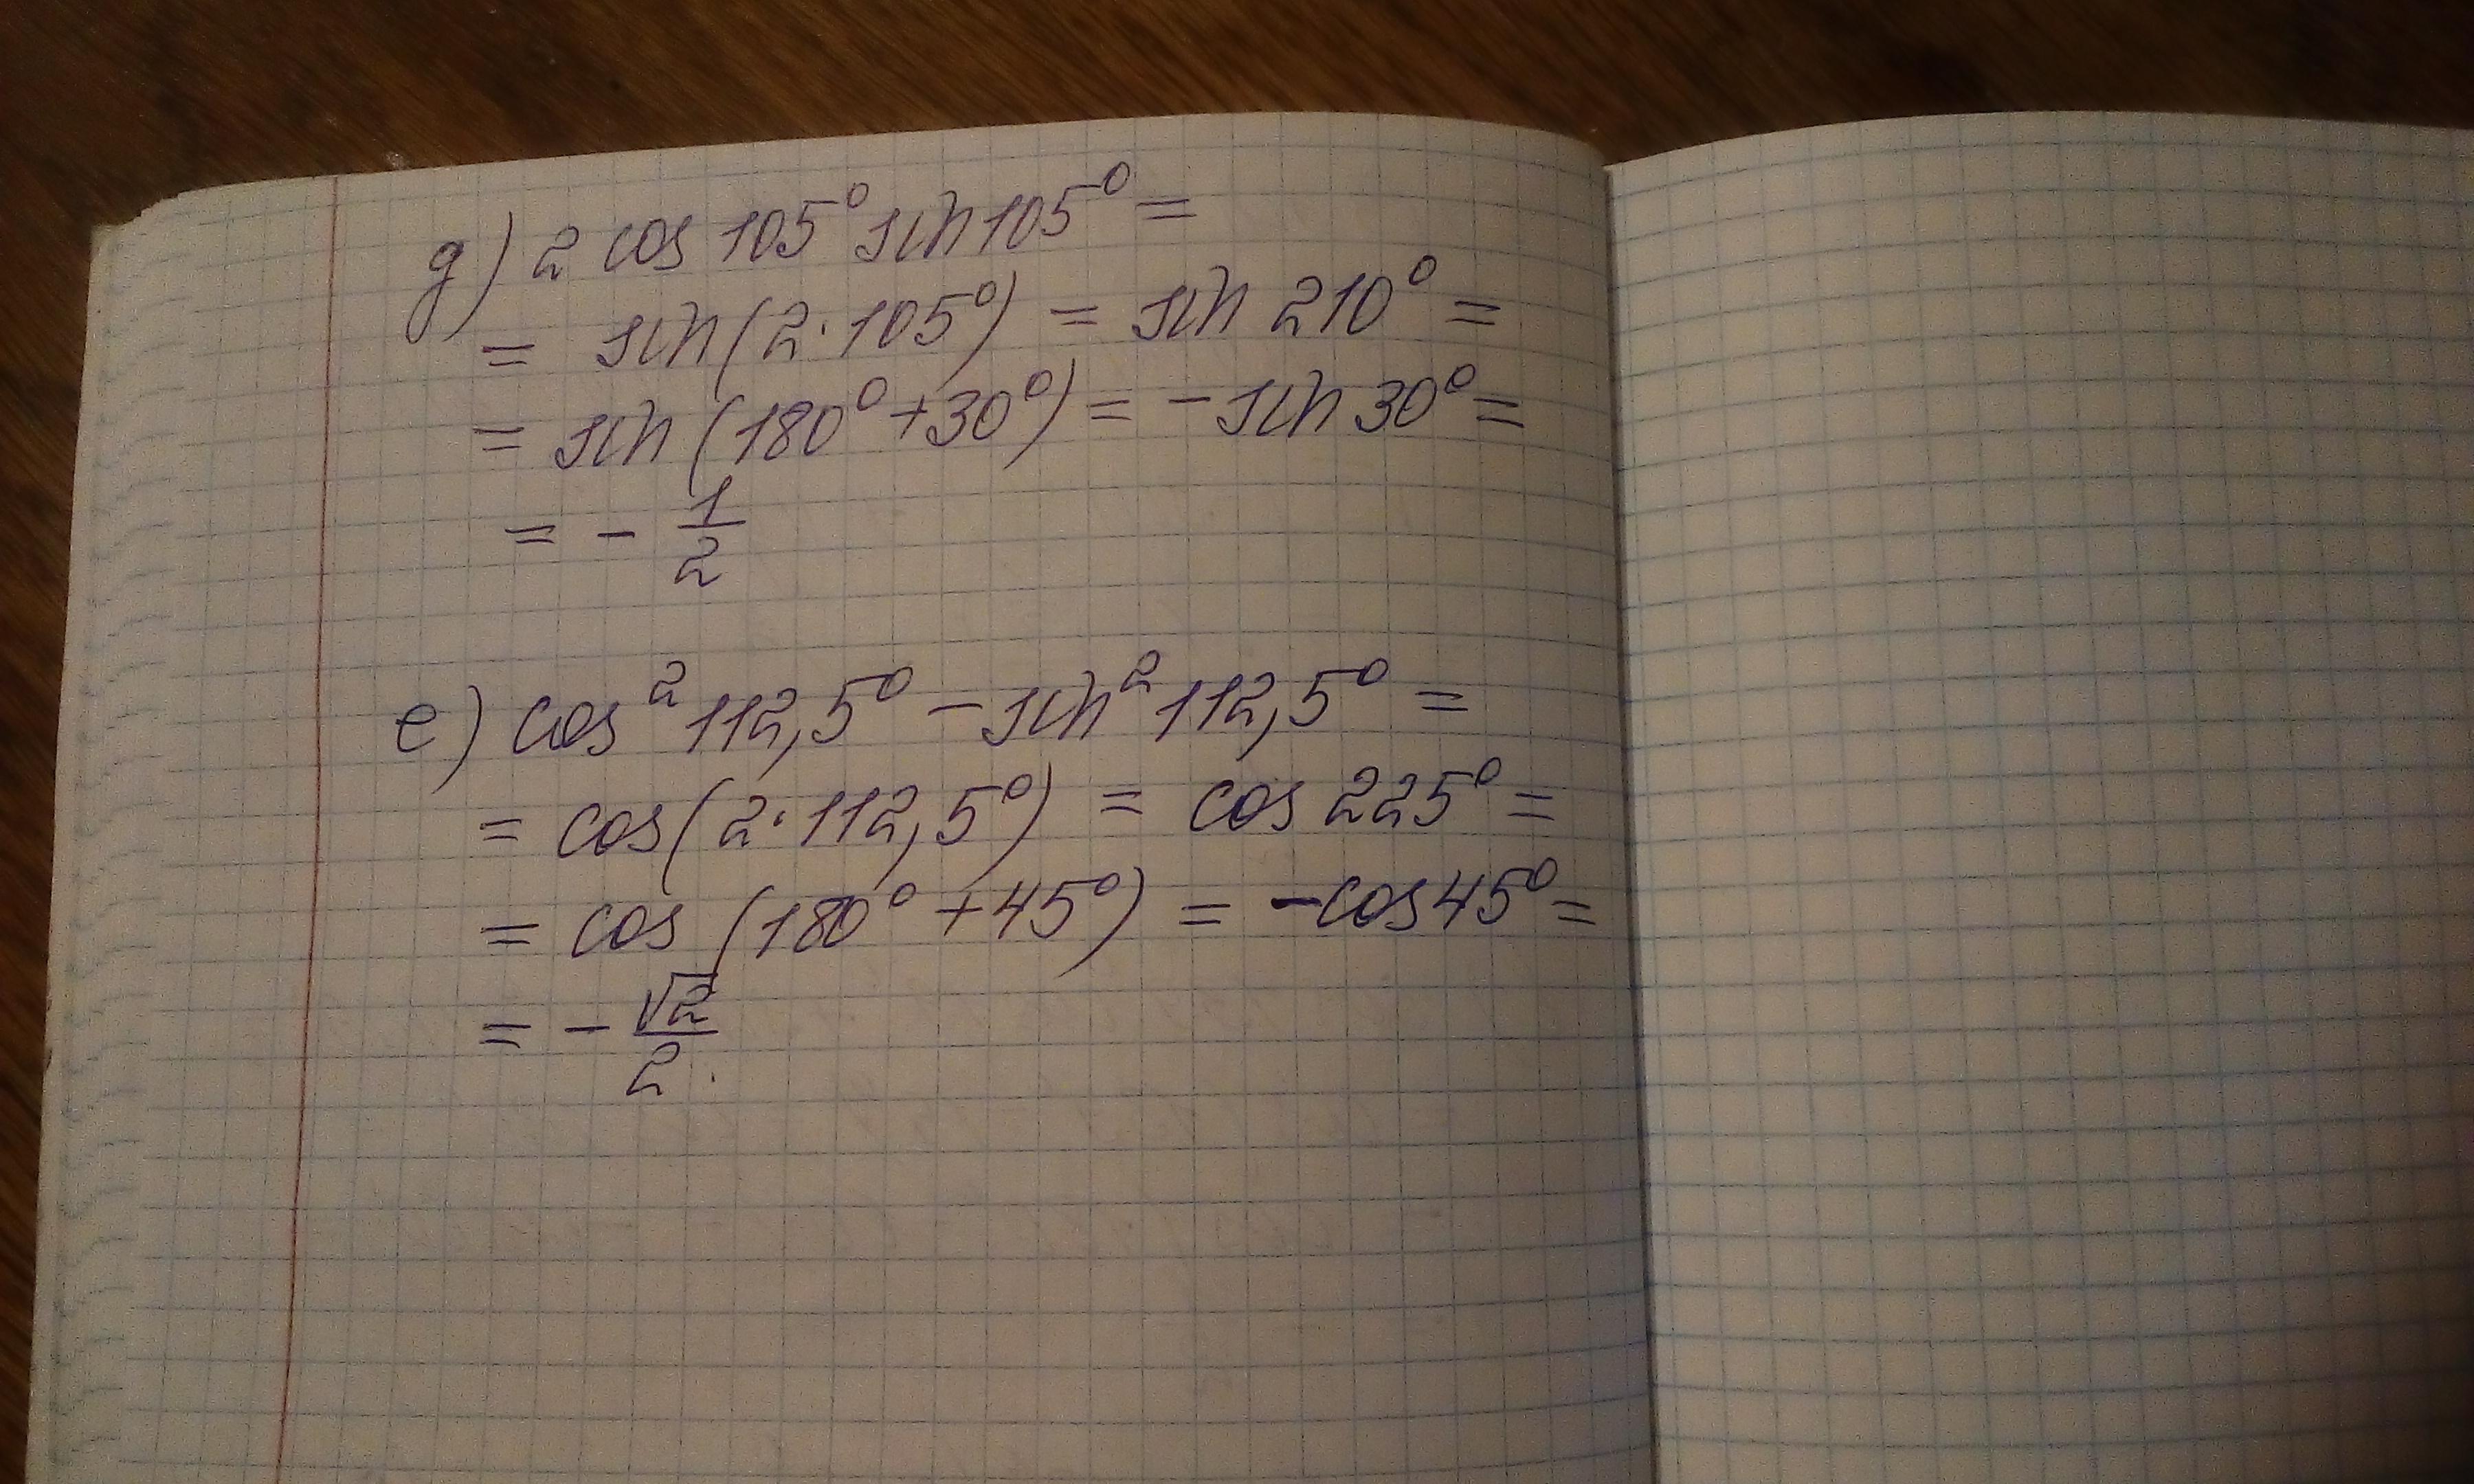 д) 2 cos 105° sin 105° =
= sin(2·105°) = sin 210° =
= sin (180° + 30°) = - sin 30° =
= - 1/2
е) cos² 112,5° - sin² 112,5° =
= cos(2·112,5°) = cos 225° =
= cos (180° + 45°) = - cos 45° =
= - √2/2.